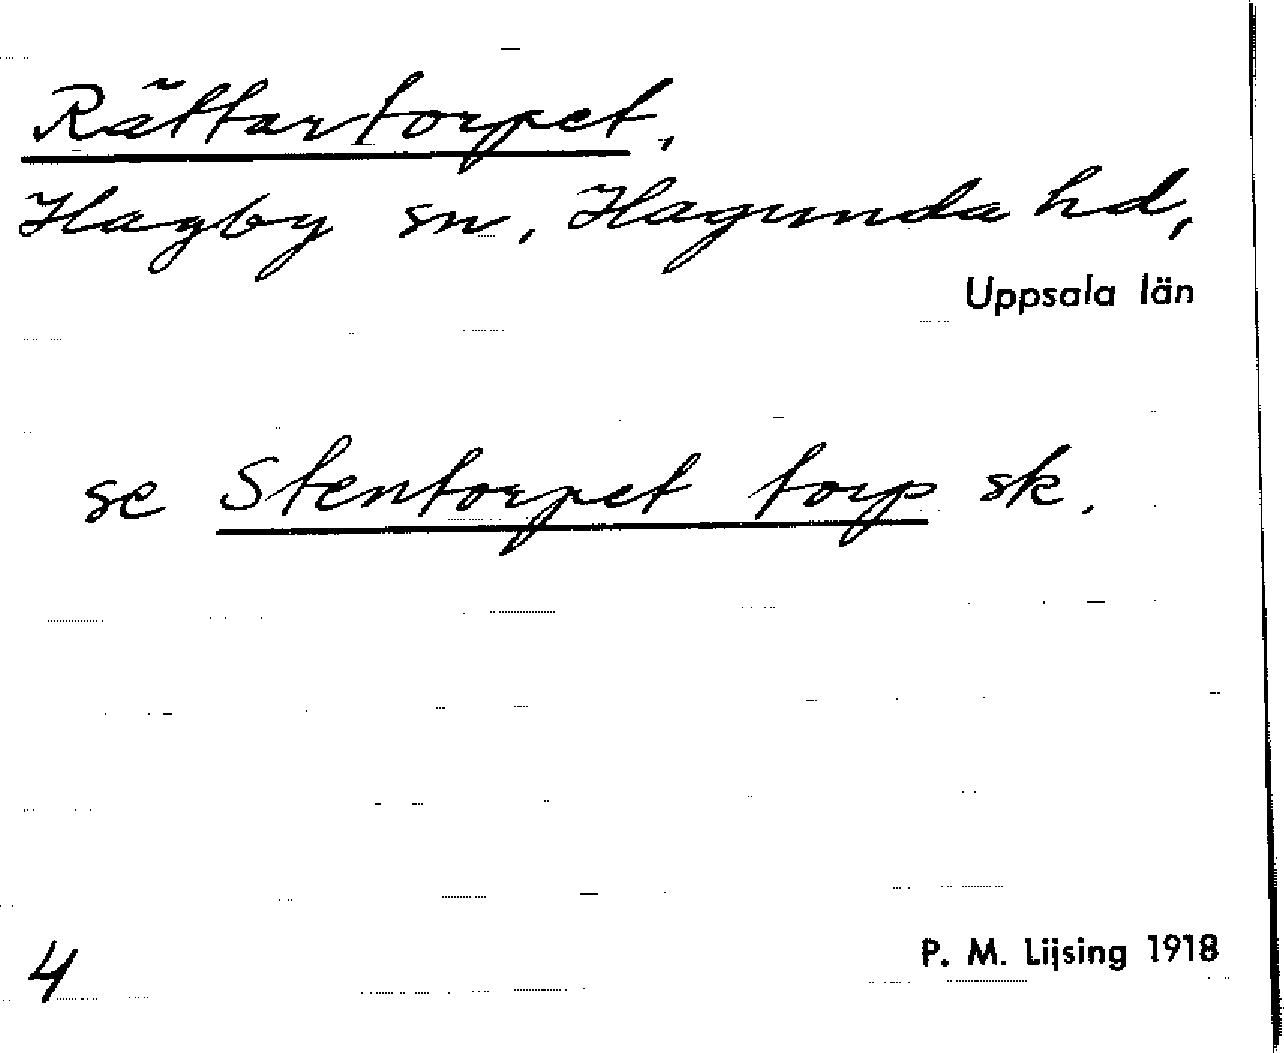 Rättartorpet,
Hagby sn, Hagunda hd,
Uppsala län
se Stentorpet torp sk.
4
P. M. Lijsing 1918